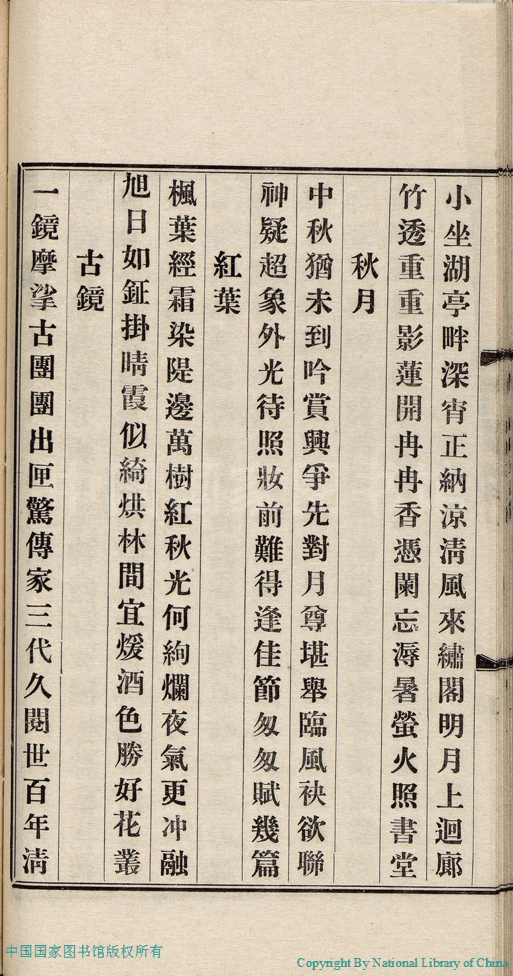 小坐湖亭畔深宵正納涼淸風來繡閣明月上迴廊
竹透重重影蓮開冉冉香憑闌忘溽暑螢火照書堂
秋月
中秋猶未到吟賞興爭先對月尊堪舉臨風袂欲聯
神疑超象外光待照妝前難得逢佳節匆匆賦幾篇
紅葉
楓葉經霜染隄邊萬樹紅秋光何絢爛夜氣更冲融
旭日如鉦掛晴霞似綺烘林間宜煖酒色勝好花叢
古鏡
一鏡摩挲古團團出匣驚傳家三代久閱世百年淸
中国国家图书馆版权所有
Copyright By National Library of China